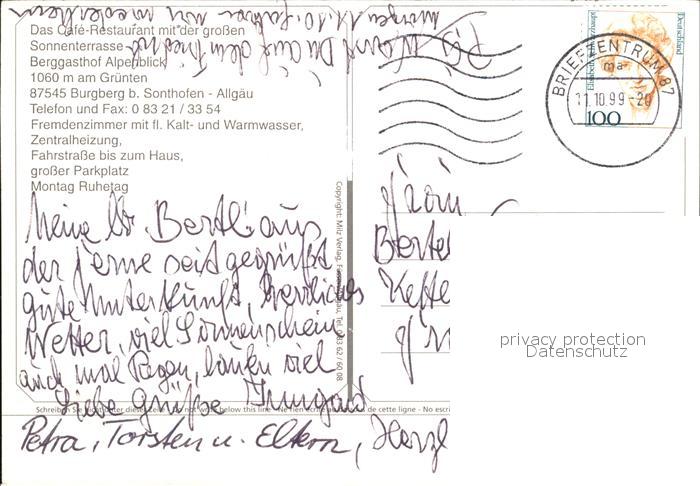 Das Café-Restaurant mit der großen
Sonnenterrasse
Berggasthof Alpenblick
1060 m am Grünten
87545 Burgberg b. Sonthofen - Allgäu
Telefon und Fax: 0 83 21 / 33 54
Fremdenzimmer mit fl. Kalt- und Warmwasser,
Zentralheizung,
Fahrstraße bis zum Haus,
großer Parkplatz
Montag Ruhetag
Meine lb. Bertl! aus
der Ferne seid gegrüßt
gute Unterkunft, herrliches
Wetter, viel Sonnenschein
auch mal Regen, laufen viel
Liebe Grüße Irmgard
Petra, Torsten u. Eltern, Herzl
Copyright: Milz Verlag,
Tel. 083 62 / 60 08
Schreiben Sie nicht unter dieser Zeile - Do not write below this line - Ne rien écrire au-dessous de cette ligne - No escri
BRIEFZENTRUM 87
ma
11.10.99-20
Deutschland
100
privacy protection
Datenschutz